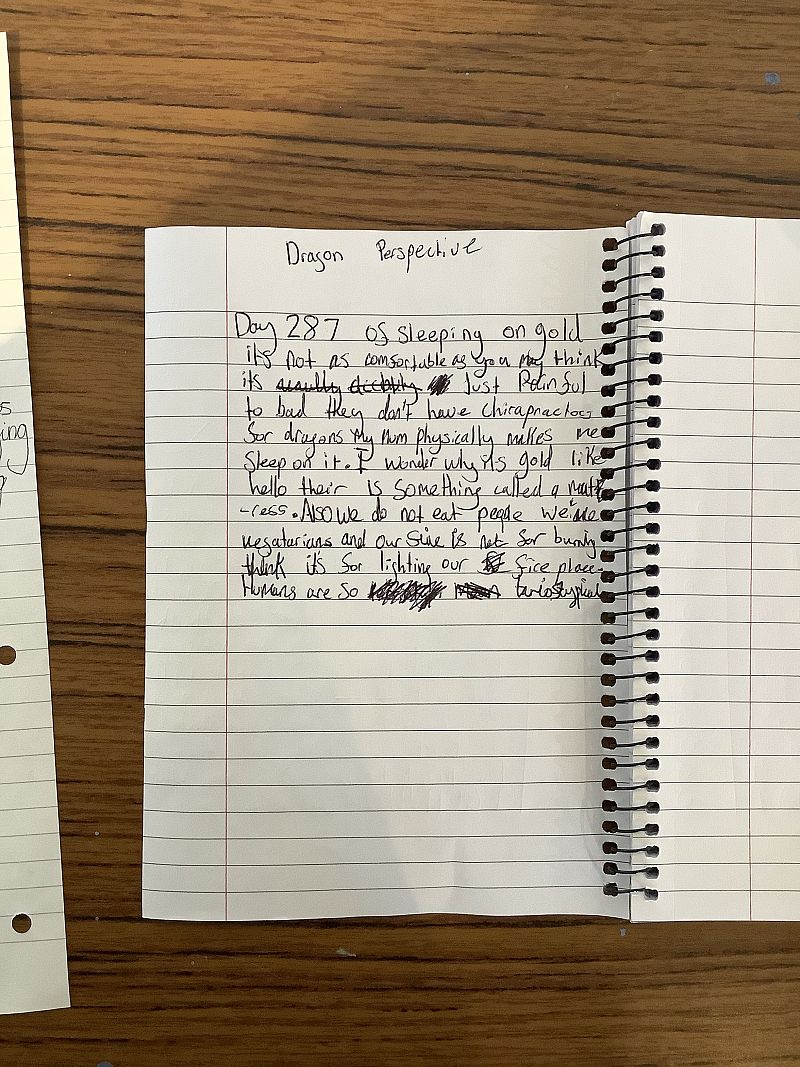 Dragon Perspective
Day 287 of sleeping on gold
it's not as comfortable as you may think
its Just Painful
to bad they don't have chirapractors
for dragons My Mum physically makes me
Sleep on it. I wonder why it's gold like
hello their is something called a matt
-ress. Also we do not eat people we're
vegatarians and our fire is not for burning
think it's for lighting our fire place.
Humans are so
s
ing